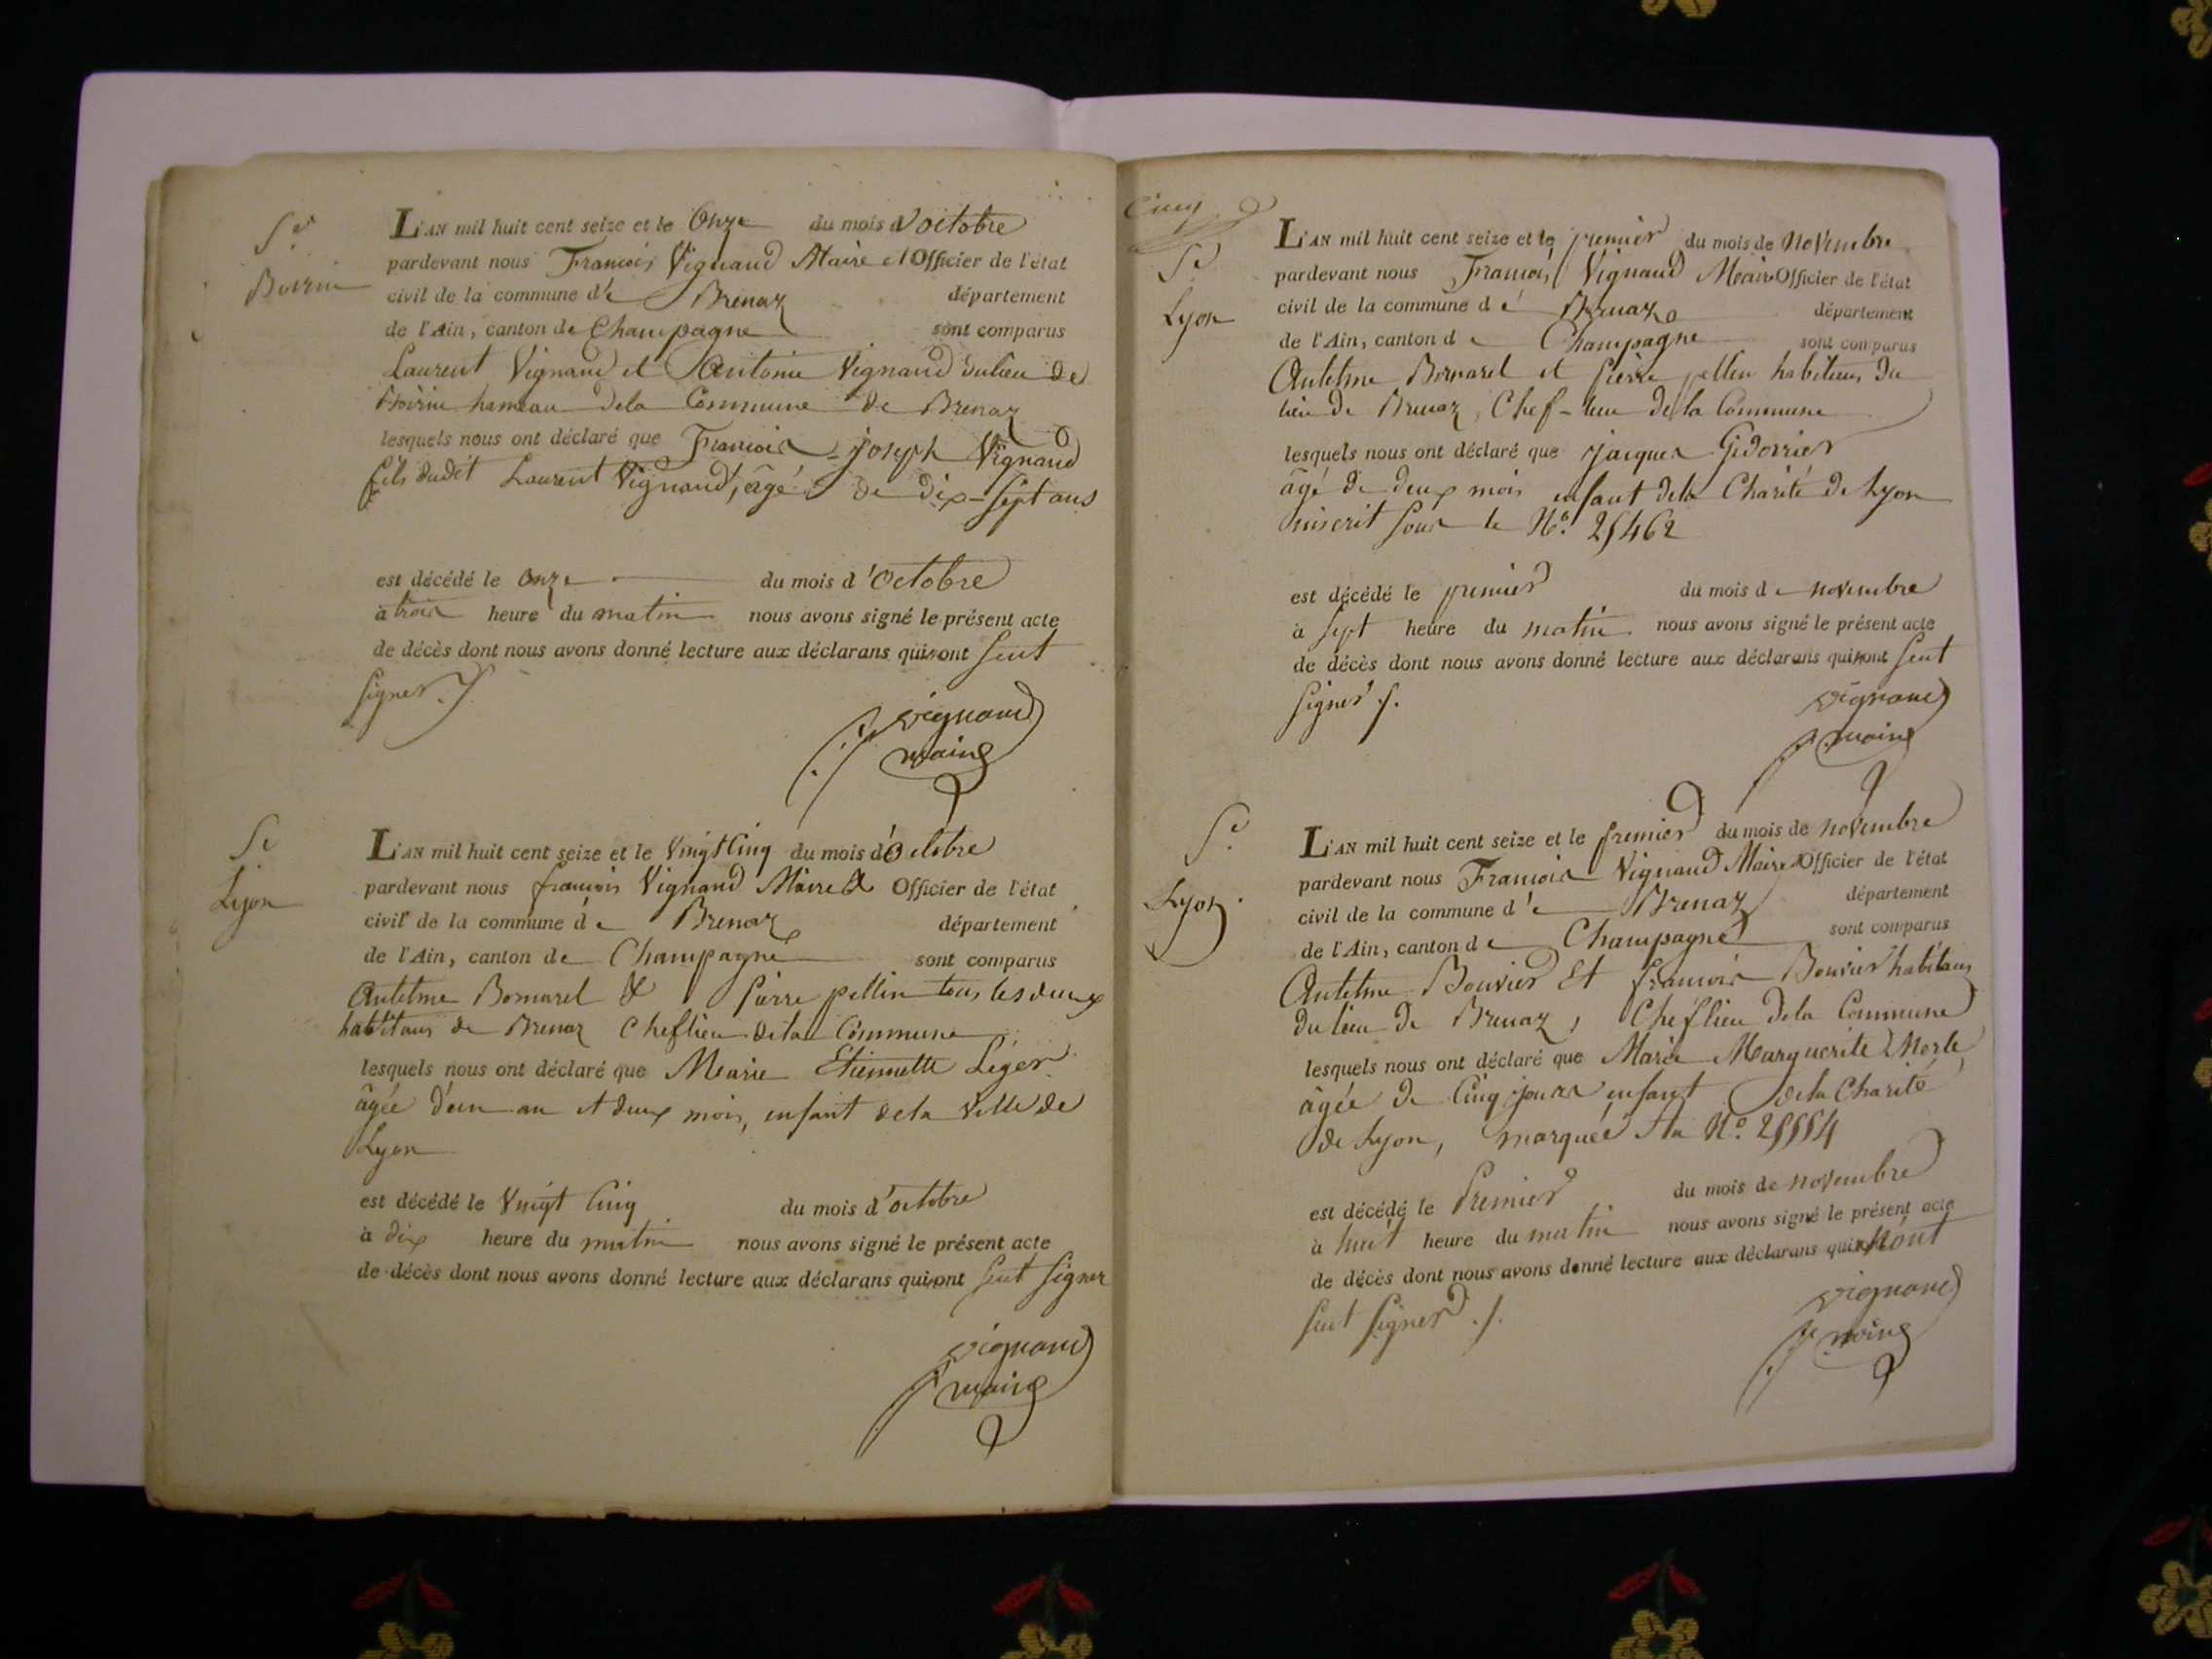 Sr
Boirin
L'AN mil huit cent seize et le Onze du mois d'octobre
pardevant nous François Vignand Maire et Officier de l'état
civil de la commune de Brenaz département
de l'Ain, canton de Champagne sont comparus
Laurent Vignand et Antoine Vignand du lieu de
Boirin hameau dela Commune de Brenaz
lesquels nous ont déclaré que François joseph Vignand
fils dudit Laurent Vignand, âgé de dix-sept ans
est décédé le onze du mois d'octobre
à trois heure du matin nous avons signé le présent acte
de décès dont nous avons donné lecture aux déclarans qui n'ont seut
signer
vignand
maire
Lyon
L'AN mil huit cent seize et le Vingt Cinq du mois d'Octobre
pardevant nous françois Vignand Maire & Officier de l'état
civil de la commune de Brenaz département
de l'Ain, canton de Champagne sont comparus
Antelme Bornarel & Pierre pellin tous les deux
habitans de Brenaz Cheflieu dela Commune
lesquels nous ont déclaré que Marie Etiennette Léger
âgée d'un an et deux mois, enfant dela Ville de
Lyon
est décédé le Vingt Cinq du mois d'octobre
à dix heure du matin nous avons signé le présent acte
de décès dont nous avons donné lecture aux déclarans qui n'ont seut signer
vignand
maire
Cinq
Lyon
L'AN mil huit cent seize et le premier du mois de Novembre
pardevant nous François Vignand Maire Officier de l'état
civil de la commune de Brenaz département
de l'Ain, canton de Champagne sont comparus
Antelme Bornarel et Pierre pellin habitans du
lieu de Brenaz, Chef-lieu de la Commune
lesquels nous ont déclaré que jacques
âgé de deux mois enfant dela Charité de Lyon
inscrit sous le No. 25462
est décédé le premier du mois de novembre
à sept heure du matin nous avons signé le présent acte
de décès dont nous avons donné lecture aux déclarans qui n'ont seut
signer
vignand
maire
Lyon
L'AN mil huit cent seize et le premier du mois de novembre
pardevant nous François Vignand Maire Officier de l'état
civil de la commune de Brenaz département
de l'Ain, canton de Champagne sont comparus
Antelme Bouvier Et françois Bouvier habitans
du lieu de Brenaz, Cheflieu dela Commune
lesquels nous ont déclaré que Marie Marguerite Merle
âgée de Cinq jours enfant dela Charité
de Lyon, marquée Au No. 25554
est décédé le Premier du mois de novembre
à huit heure du matin nous avons signé le présent acte
de décès dont nous avons donné lecture aux déclarans qui n'ont
seut signer
vignand
maire